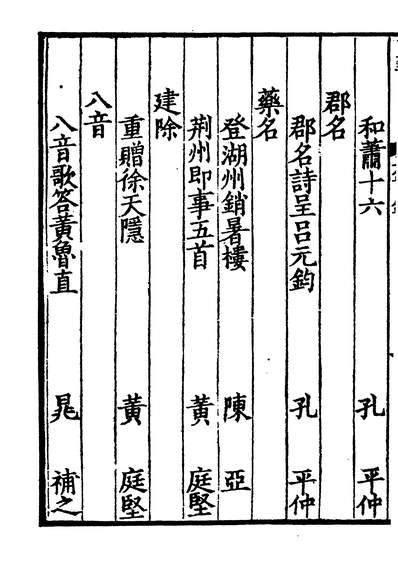 和蕭十六 孔平仲
郡名
郡名詩呈呂元鈞 孔平仲
藥名
登湖州銷暑樓 陳亞
荆州即事五首 黃庭堅
建除
重贈徐天隱 黃庭堅
八音
八音歌答黃魯直 晁補之